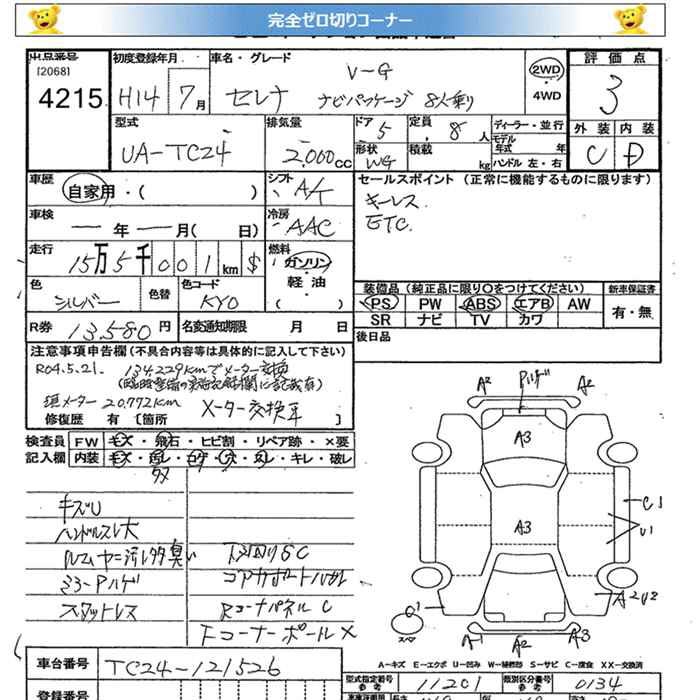 完全ゼロ切りコーナー
出品番号 初度登録年月 車名・グレード 評価点
[2068] V-G 2WD
4215 H14 7月 セレナ ナビパッケージ 8人乗り 4WD 3
型式 排気量 ドア 5 定員 8人 ディーラー・並行 外装 内装
UA-TC24 2,000cc 形状 WG 積載 kg モデル年式 年 C D
ハンドル 左・右
車歴 シフト セールスポイント (正常に機能するものに限ります)
自家用・( ) A/T キーレス
車検 冷房 ETC
ー年ー月( 日) AAC
走行 燃料
15万5千001km $ ガソリン
色 色替 色コード 軽油 装備品(純正品に限り○をつけてください) 新車保証書
シルバー KY0 ( ) PS PW ABS エアB AW 有・無
R券 13,580円 名変通知期限 月 日 SR ナビ TV カワ
後日品
注意事項申告欄(不具合内容等は具体的に記入して下さい)
R04.5.21. 134229kmでメーター交換
現メーター 20,772km
修復歴 有 [箇所 メーター交換車 ]
検査員 FW キズ・飛石・ヒビ割・リペア跡・×要
記入欄 内装 キズ・キレ・破レ
A² A²
A3
キズU
ハンドルスレ大
下廻りSC A3 C1
U1
ミラーハゲ
スタットレス Rコーナパネル C A2U2
Fコーナーポール× スペア
A1 A² A3
A-キズ E-エクボ U-凹み W-補修跡 S-サビ C-腐食 XX-交換済
車台番号 TC24-121526 型式指定番号 参考 11201 類別区分番号 参考 0134
登録番号